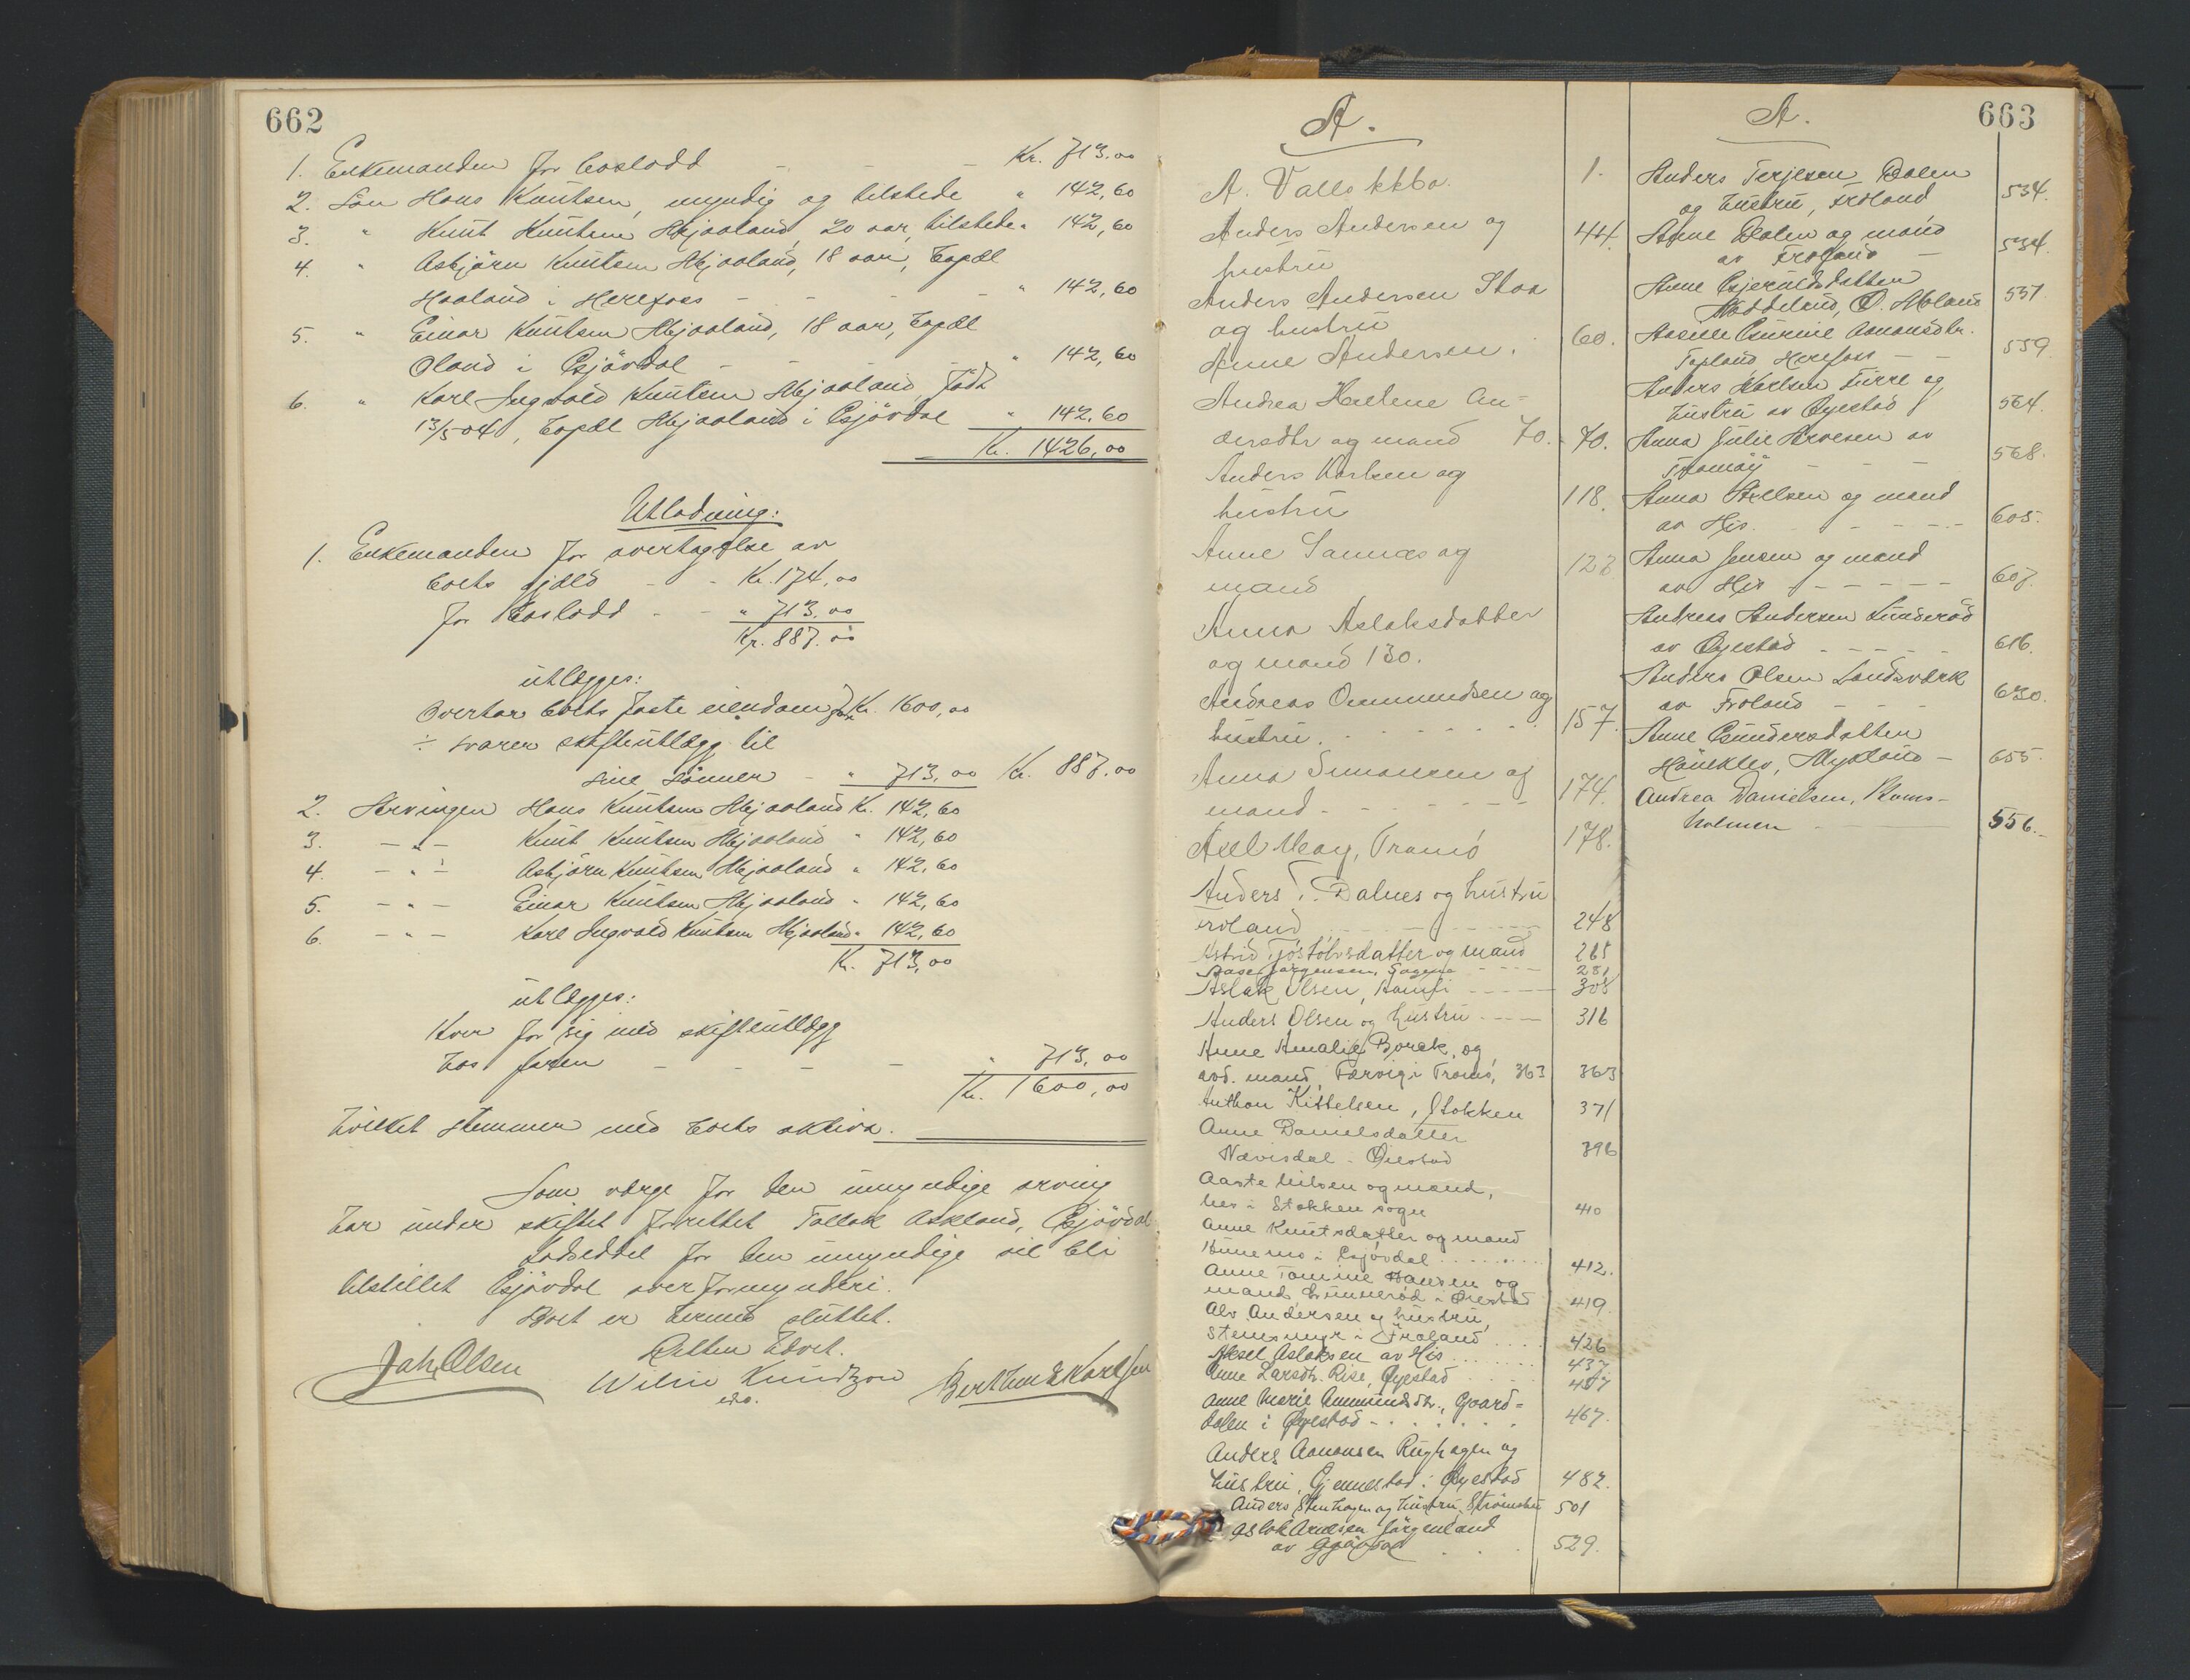 662
1. Enkemanden for boslodd - - - Kr. 713.00
2. Søn Hans Knutsen, myndig og tilstede " 142,60
3. " Knut Knutsen Mjaaland, 20 aar, tilstede " 142,60
4. " Asbjørn Knutsen Mjaaland, 18 aar, bopæl
Haaland i Herefoss - - - - " 142,60
5. " Einar Knutsen Mjaaland, 18 aar, bopæl
Øland i Gjøvdal - - - - " 142,60
6. " Karl Ingvald Knutsen Mjaaland, født
13/5 04, bopæl Mjaaland i Gjøvdal " 142,60
Kr. 1426,00
Utlodning:
1. Enkemanden for overtagelse av
boets gjæld - - Kr. 174,00
for boslodd - - " 713,00
Kr. 887.00
utlægges:
Overtar boets faste eiendom for Kr. 1600,00
÷ svarer skifteutlægg til
sine sønner - " 713,00 Kr. 887.00
2. Arvingen Hans Knutsen Mjaaland Kr. 142,60
3. - " - Knut Knutsen Mjaaland " 142,60
4. - " - Asbjørn Knutsen Mjaaland " 142,60
5. - " - Einar Knutsen Mjaaland " 142,60
6. - " - Karl Ingvald Knutsen Mjaaland " 142,60
Kr. 713,00
utlægges:
Hver for sig med skifteutlægg
hos faren - - - - " 713,00
Kr. 1600,00
hvilket stemmer med boets aktiva.
Som værge for den umyndige arving
har under skiftet forrettet Tallak Askland, Gjøvdal
Lodseddel for den umyndige vil bli
tilstillet Gjøvdal overformynderi.
Boet er hermed sluttet.
Retten hævet.
Joh Olsen Wilh Knudtzon Berthun E Karlsen
eds.
A.
A. Valls kkbo. 1.
Anders Andersen og
hustru 44.
Anders Andersen Stoa
og hustru 60.
Anne Andersen.
Andrea Helene An=
dersdtr og mand 70. 70.
Anders Karlsen og
hustru 118.
Anne Sannæs og
mand 122
Anna Aslaksdatter
og mand 130.
Andreas Ommundsen og
hustru. 157.
Anna Simonsen og
mand - - - 174.
Axel May, Tromø 178.
Anders T. Dalnes og hustru
Froland 248
Astrid Tjøstolvsdatter og mand 265
Aase Jørgensen, 281
Aslak Olsen, 308
Anders Olsen og hustru - - - 316
Anne Amalie Borck, og
avd. mand, Færvig i Tromø, 363 363
Anthon Kittelsen, Stokken 371
Anne Danielsdatter
Nævisdal - Øiestad 396
Aaste Nilsen og mand,
Nes i Stokken sogn 410
Anne Knutsdatter og mand
Hunemo i Gjøvdal 412.
Anne Tomine Hansen og
mand Lunnerød i Øiestad 419.
Alv Andersen og hustru,
Stemsmyr i Froland 426
Aksel Aslaksen av His 437
Anne Larsdtr. Rise, Øyestad 457
Anne Marie Ammundsdtr., Gaard=
dalen i Øyestad 467.
Anders Aanonsen Rughagen og
hustru, Gjennestad i Øyestad 482.
Anders Stenhagen og hustru, 501
Aslak Arnesen Jørgenland
av Gjøvdal 529.
A. 663
Anders Terjesen Dalen
og hustru, Froland 534.
Anne Dalen og mand
av Froland - 534.
Anne Gjeruldsdatter
Moddeland, Ø. Moland 537.
Aasille Gurine Aanonsdtr.
Topland, Herefoss - - 559
Anders Karlsen Furre og
hustru av Øyestad 564.
Anna Julie Arvesen av
Tromøy - - - 568.
Anna Axelsen og mand
av His. - - - 605.
Anna Jensen og mand
av His - - - - 607.
Andreas Andersen Lunderød
av Øyestad - - - 616.
Anders Olsen Landsværk
av Froland - - - 630.
Anne Gundersdatter
Haukklev, Mykland - 655.
Andrea Danielsen, Roms-
holmen - 556.